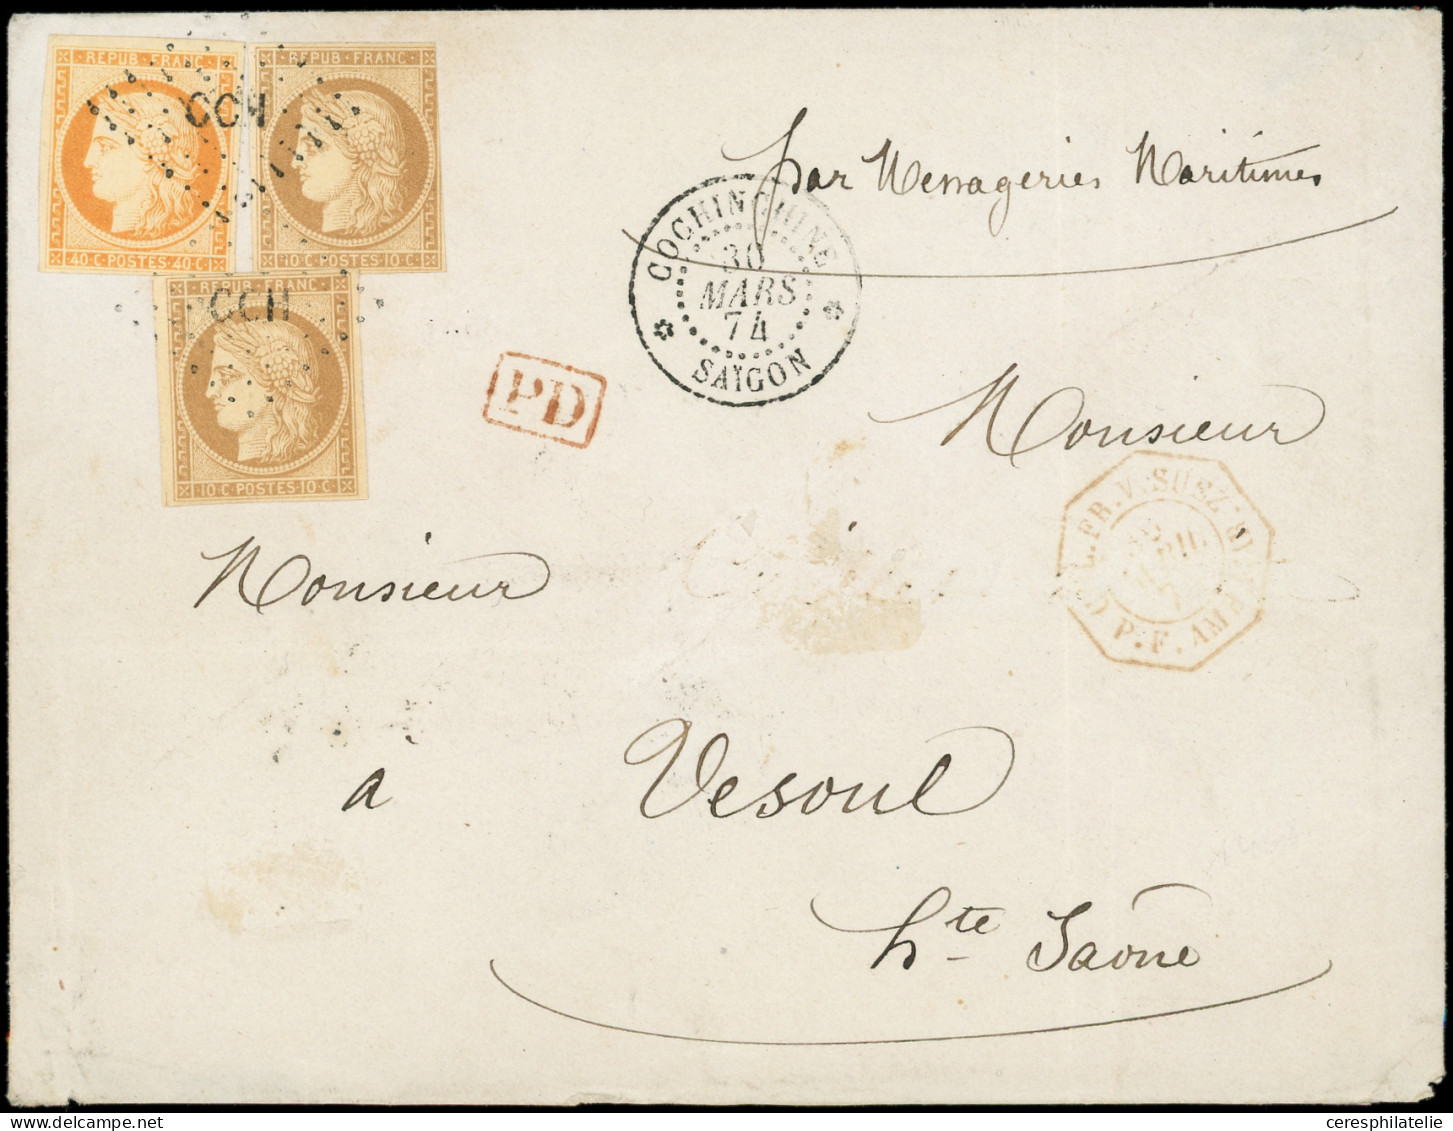 REPUB·FRANC
REPUB·FRANC
CCH
40·C·POSTES·40·C
10·C·POSTES·10·C
REPUB·FRANC
CCH
10·C·POSTES·10·C
par Messageries Maritimes
COCHINCHINE
30
MARS
74
SAÏGON
PD
Monsieur
L.FR.V.SUEZ
P.F.AM
Monsieur
a Vesoul
hte Saône
ceresphilatelie